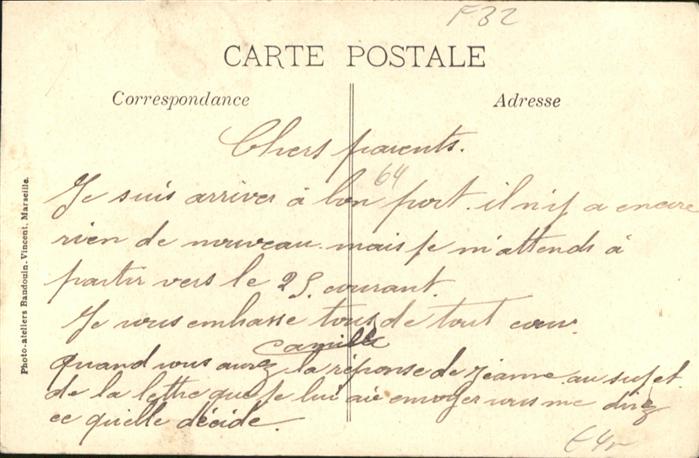 F32
CARTE POSTALE
Correspondance
Adresse
Chers parents.
64
Je suis arriver à bon port. il n'y a encore
rien de nouveau. mais je m'attends à
partir vers le 25. courant.
Je vous embrasse tous de tout cœur.
Camille
quand vous aurez la réponse de Jeanne au sujet
de la lettre que je lui ai envoyer vous me direz
ce qu'elle décide.
Photo-ateliers Baudouin-Vincent, Marseille.